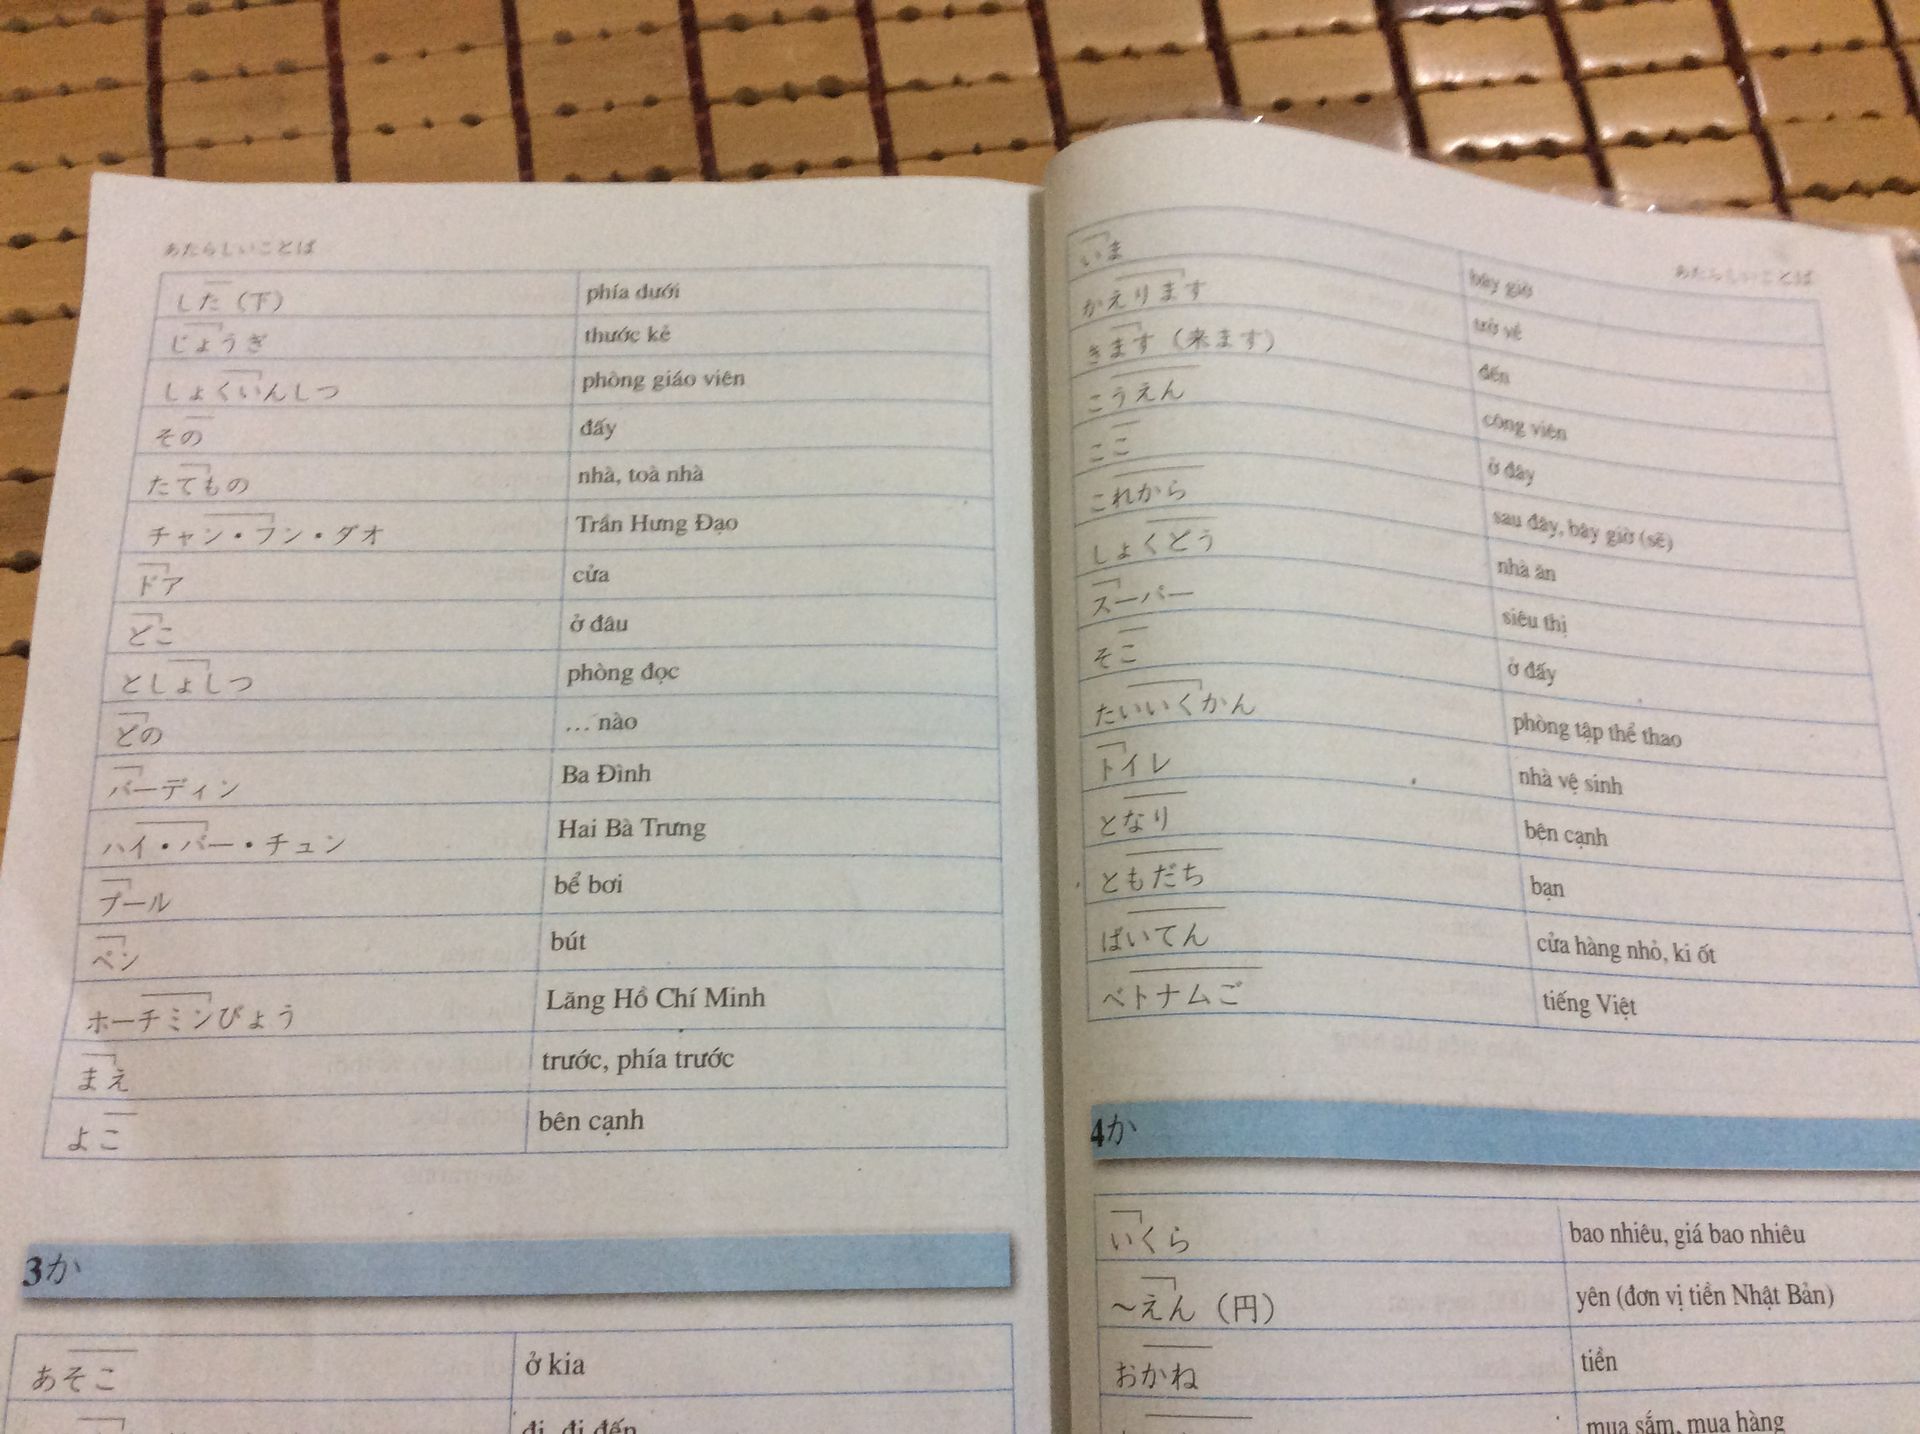 あたらしいことば
した（下） phía dưới
じょうぎ thước kẻ
しょくいんしつ phòng giáo viên
その đấy
たてもの nhà, toà nhà
チャン・フン・ダオ Trần Hưng Đạo
ドア cửa
どこ ở đâu
としょしつ phòng đọc
どの … nào
バーディン Ba Đình
ハイ・バー・チュン Hai Bà Trưng
プール bể bơi
ペン bút
ホーチミンびょう Lăng Hồ Chí Minh
まえ trước, phía trước
よこ bên cạnh
3か
あそこ ở kia
đi, đi đến
あたらしいことば
いま bây giờ
かえります trở về
きます（来ます） đến
こうえん công viên
ここ ở đây
これから sau đây, bây giờ (sẽ)
しょくどう nhà ăn
スーパー siêu thị
そこ ở đấy
たいいくかん phòng tập thể thao
トイレ nhà vệ sinh
となり bên cạnh
ともだち bạn
ばいてん cửa hàng nhỏ, ki ốt
ベトナムご tiếng Việt
4か
いくら bao nhiêu, giá bao nhiêu
～えん（円） yên (đơn vị tiền Nhật Bản)
おかね tiền
mua sắm, mua hàng